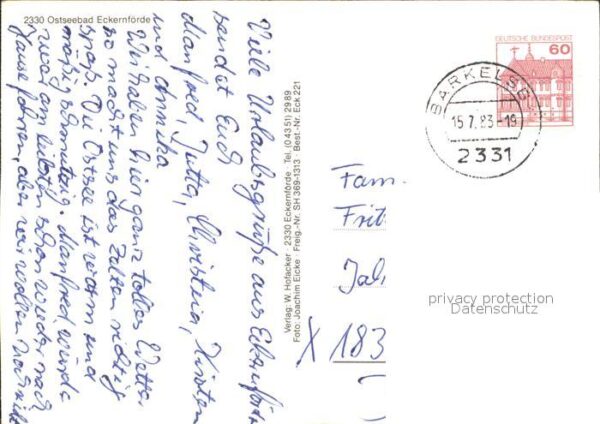 2330 Ostseebad Eckernförde
Viele Urlaubsgrüße aus Eckernförde
sendet Euch
Manfred, Jutta, Christina, Kirsten
und Annika
Wir haben hier ganz tolles Wetter
so macht uns das Zelten richtig
spaß. Die Ostsee ist warm und
mäßig schmutzig. Manfred würde
zwar am liebsten schon wieder nach
Hause fahren, aber wir wollen noch
Verlag: W. Hofacker · 2330 Eckernförde Tel. (04351) 2989
Foto: Joachim Eicke Freig.-Nr. SH 369-1313 · Best.-Nr. Eck 221
DEUTSCHE BUNDESPOST
60
BARKELSBY
15.7.83-19
2331
Fam.
Frit
Jal
X 183
privacy protection
Datenschutz